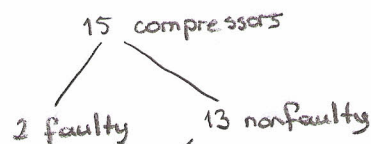 15 compressors
2 faulty 13 nonfaulty